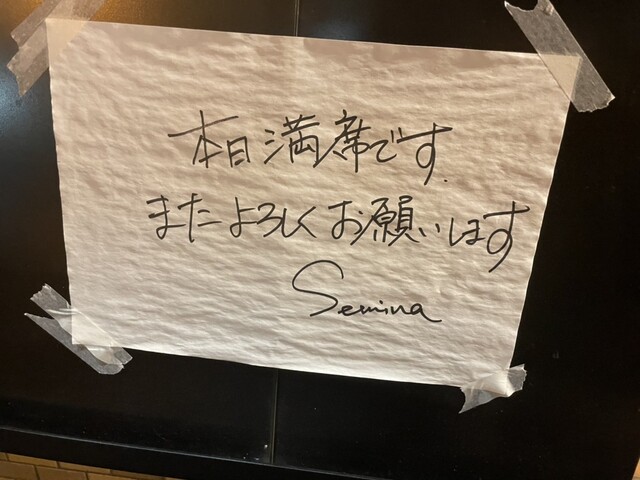 本日満席です.
またよろしくお願いします
Semina